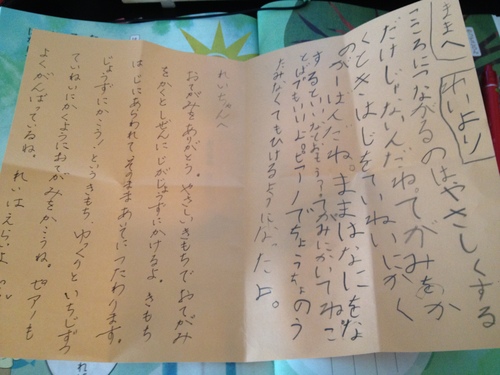 ままへ
れいより
こころにつながるのはやさしくする
だけじゃないんだね。てがみをか
くときはじをていねいにかく
のが ばんだね。ままはなにを
するといいなておもう?てがみにかいてねこ
とばでもいいよ。ピアノでちょうちょのう
たみなくてもひけるようになったよ。
れいちゃんへ
おてがみをありがとう。やさしいきもちでおてがみ
をかくとしぜんにじがじょうずにかけるよ。きもち
はじにあらわれてそのままあいてにつたわります。
じょうずにかこう!というきもち ゆっくりと いちじずつ
ていねいにかくようにおてがみをかこうね。ピアノも
よくがんばっているね。れいはえらいよ